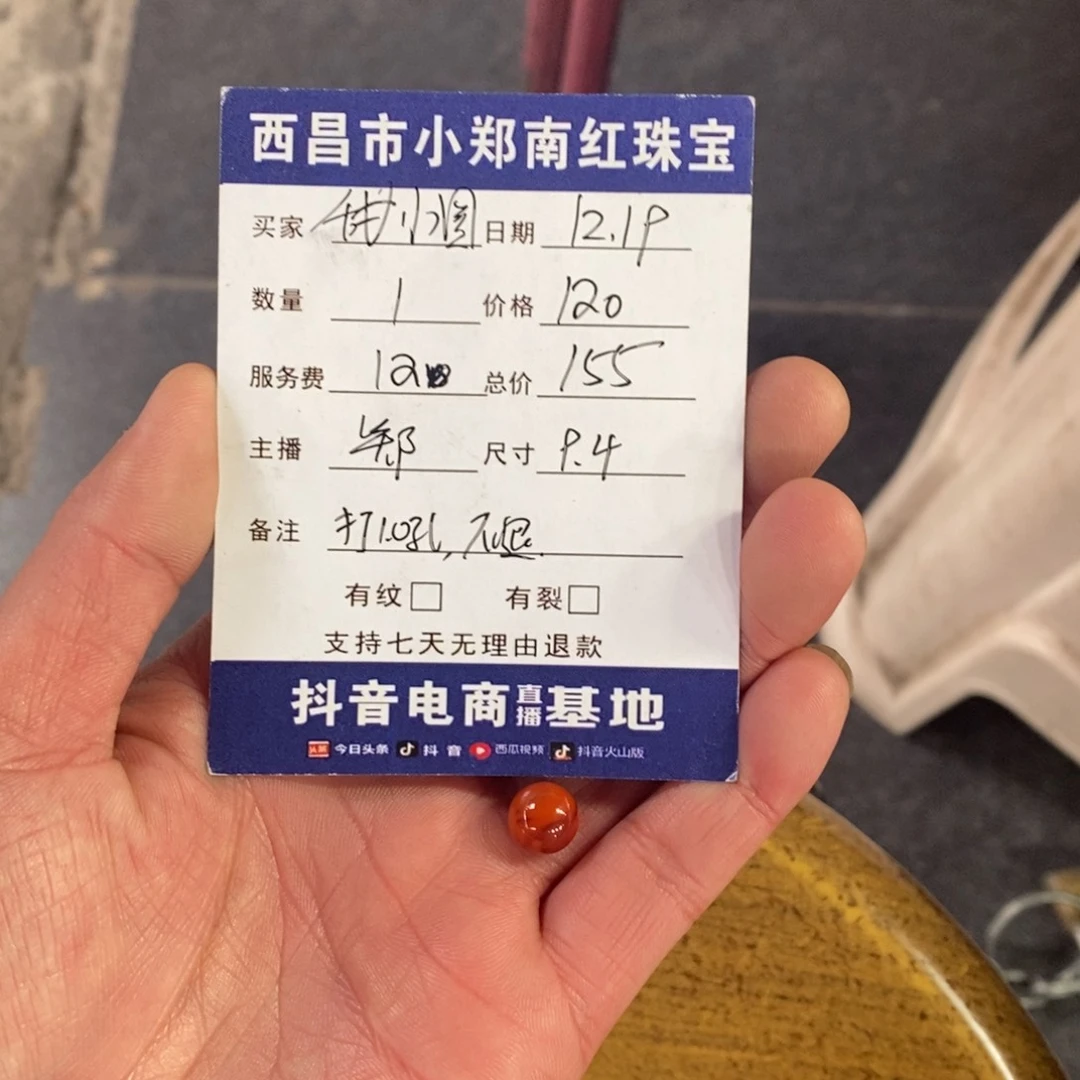 西昌市小郑南红珠宝
买家 小圆 日期 12.19
数量 1 价格 120
服务费 12 总价 155
主播 郑 尺寸 9.4
备注 打1.0孔, 不退.
有纹 有裂
支持七天无理由退款
抖音电商直播基地
头条 今日头条 抖音 西瓜视频 抖音火山版